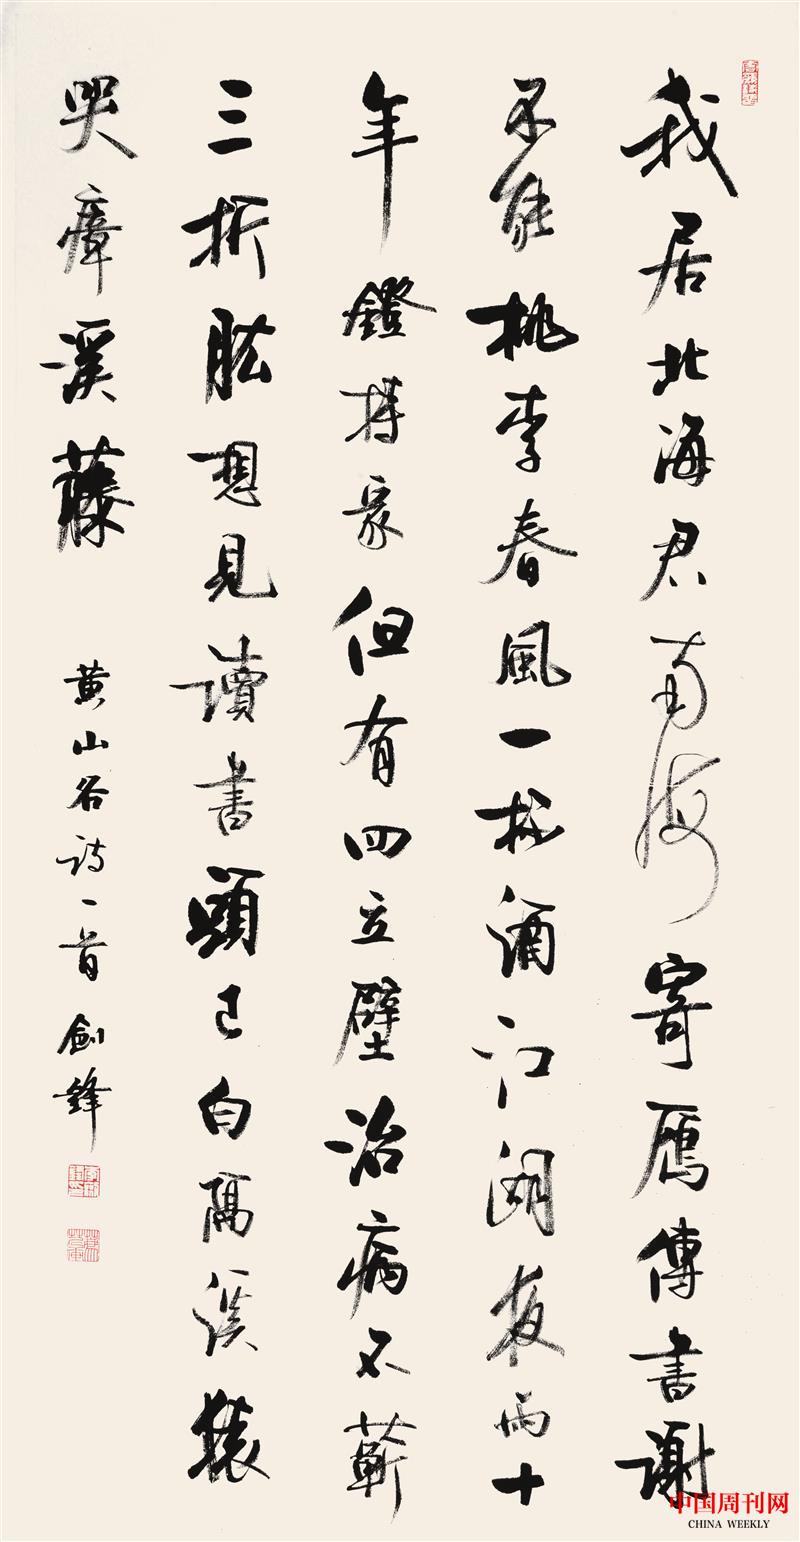 我居北海君南海寄鴈傳書謝
不能桃李春風一杯酒江湖夜雨十
年鐙持家但有四立壁治病不蘄
三折肱想見讀書頭已白隔溪猿
哭瘴溪藤
黄山谷詩一首 劍鋒
中国周刊网
CHINA WEEKLY